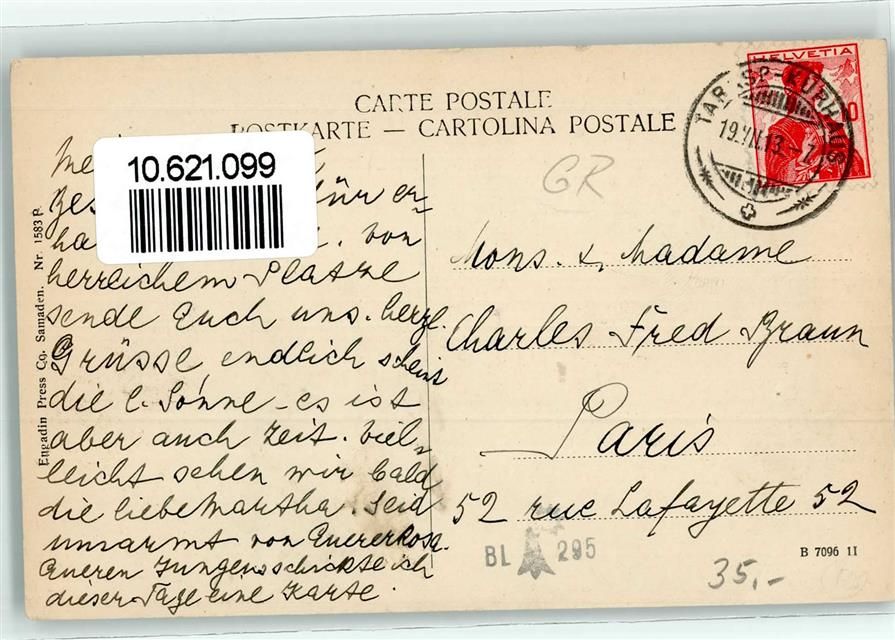 CARTE POSTALE
POSTKARTE — CARTOLINA POSTALE
HELVETIA
TARASP-KURHAUS
19.VII.13.-7
10.621.099
GR
für er-
ha von
herrlichem Platze
sende Euch uns. herzl.
Grüsse endlich scheint
die l. Sonne - es ist
aber auch Zeit. Viel-
leicht sehen wir bald
die liebe Martha. Seid
umarmt von Euerer Rosa.
Eueren Jungens schickte ich
dieser Tage eine Karte.
Mons. & Madame
Charles Fred Braun
Paris
52 rue Lafayette 52
BL 295
B 7096 II
35,-
Engadin Press Co. Samaden. Nr. 1583 P.